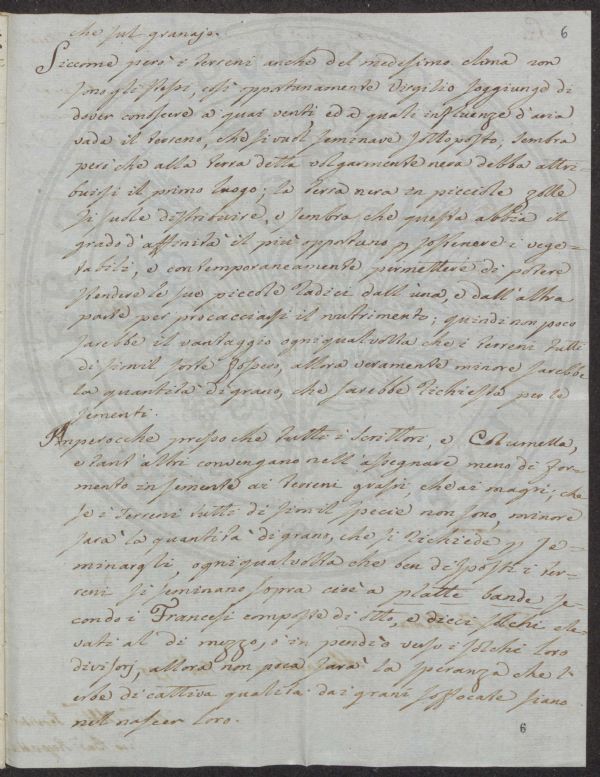 che sul granajo.
6
Siccome però i terreni anche del medesimo clima non
sono gli stessi, così opportunamente Virgilio soggiunge di
dover conoscere a quai venti, ed a quale influenze d'aria
vada il terreno, che si vuol seminare sottoposto, sembra
però che alla terra detta volgarmente nera debba attri=
buirsi il primo luogo; la terra nera in picciole zolle
si suole distribuire, e sembra che questa abbia il
grado d'affinità il più opportuno p sostenere i vege=
tabili, e contemporaneamente permettere di potere
stendere le sue piccole radici dall'una, e dall'altra
parte per procacciarsi il nutrimento; quindi non poco
sarebbe il vantaggio ogniqualvolta che i terreni tutti
di simil sorte fossero, allora veramente minore sarebbe
la quantità di grano, che sarebbe richiesta per le
sementi.
Imperocche presso che tutti i scrittori, e Columella,
e tant'altri convengano nell'assegnare meno di for=
mento in semente ai terreni grassi che ai magri; che
se i terreni tutti di simil specie non sono, minore
sarà la quantità di grano, che si richiede p se=
minargli, ogniqualvolta che ben disposti i ter=
reni si seminano sopra cioè a platte bande se
condo i Francesi composte di otto, o dieci solchi ele
vati al di mezzo, o in pendìo verso i solchi loro
divisorj, allora non poca sarà la speranza che l'
erbe di cattiva qualità dai grani soffocate siano
nell nascer loro.
6